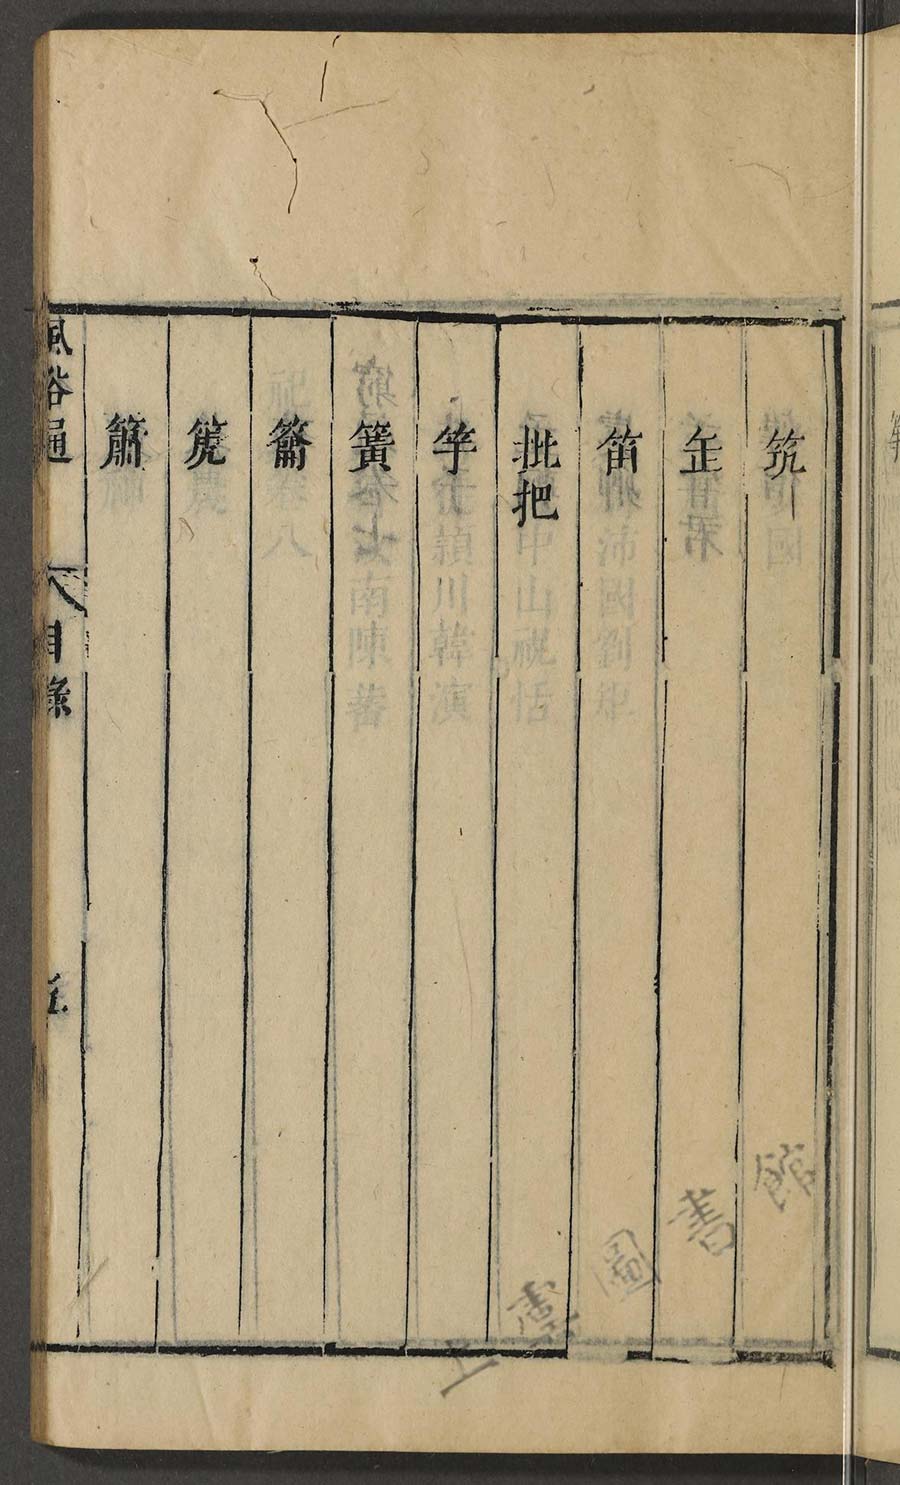 筑
缶
笛
批把
竽
簧
籥
篪
簫
風俗通
目錄
五
上虞圖書館